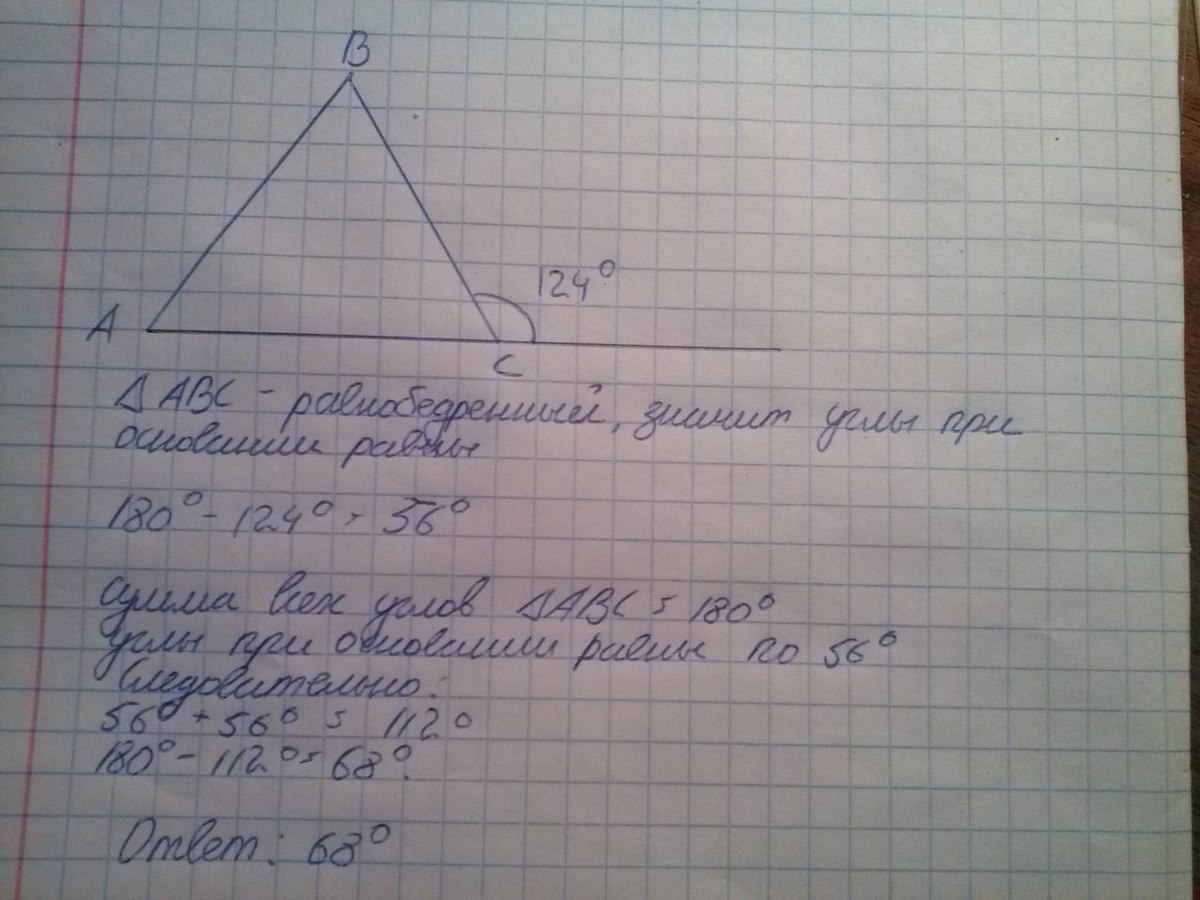 B
124°
A
C
△ABC - равнобедренный, значит углы при
основании равны
180° - 124° = 56°
Сумма всех углов △ABC = 180°
Углы при основании равны по 56°
Следовательно:
56° + 56° = 112°
180° - 112° = 68°.
Ответ: 68°